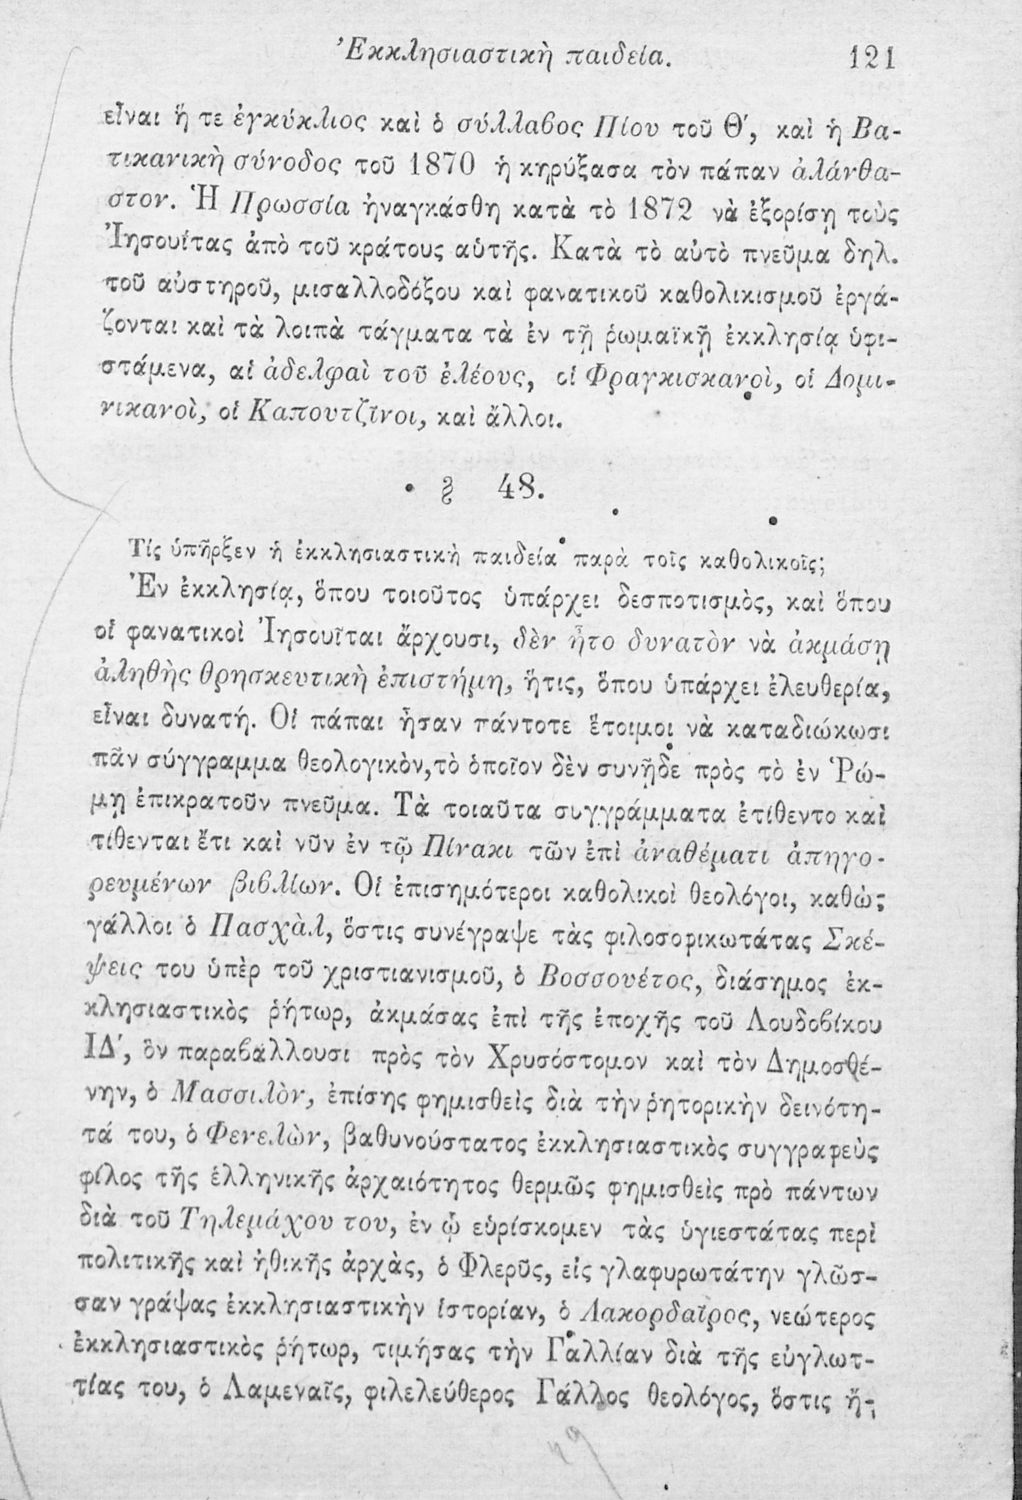 Ἐκκλησιαστικὴ παιδεία. 121
εἶναι ἥ τε ἐγκύκλιος καὶ ὁ σύλλαβος Πίου τοῦ Θʹ, καὶ ἡ Βα-
τικανικὴ σύνοδος τοῦ 1870 ἡ κηρύξασα τὸν πάπαν ἀλάνθα-
στον. Ἡ Πρωσσία ἠναγκάσθη κατὰ τὸ 1872 νὰ ἐξορίσῃ τοὺς
Ἰησουΐτας ἀπὸ τοῦ κράτους αὑτῆς. Κατὰ τὸ αὐτὸ πνεῦμα δηλ.
τοῦ αὐστηροῦ, μισαλλοδόξου καὶ φανατικοῦ καθολικισμοῦ ἐργά-
ζονται καὶ τὰ λοιπὰ τάγματα τὰ ἐν τῇ ῥωμαϊκῇ ἐκκλησίᾳ ὑφι-
στάμενα, αἱ ἀδελφαὶ τοῦ ἐλέους, οἱ Φραγκισκανοὶ, οἱ Δομι-
νικανοὶ, οἱ Καπουτζῖνοι, καὶ ἄλλοι.
§ 48.
Τίς ὑπῆρξεν ἡ ἐκκλησιαστικὴ παιδεία παρὰ τοῖς καθολικοῖς;
Ἐν ἐκκλησίᾳ, ὅπου τοιοῦτος ὑπάρχει δεσποτισμὸς, καὶ ὅπου
οἱ φανατικοὶ Ἰησουῖται ἄρχουσι, δὲν ἦτο δυνατὸν νὰ ἀκμάσῃ
ἀληθὴς θρησκευτικὴ ἐπιστήμη, ἥτις, ὅπου ὑπάρχει ἐλευθερία,
εἶναι δυνατή. Οἱ πάπαι ἦσαν πάντοτε ἕτοιμοι νὰ καταδιώκωσι
πᾶν σύγγραμμα θεολογικὸν, τὸ ὁποῖον δὲν συνῇδε πρὸς τὸ ἐν Ῥώ-
μῃ ἐπικρατοῦν πνεῦμα. Τὰ τοιαῦτα συγγράμματα ἐτίθεντο καὶ
τίθενται ἔτι καὶ νῦν ἐν τῷ Πίνακι τῶν ἐπὶ ἀναθέματι ἀπηγο-
ρευμένων βιβλίων. Οἱ ἐπισημότεροι καθολικοὶ θεολόγοι, καθὼς
γάλλοι ὁ Πασχὰλ, ὅστις συνέγραψε τὰς φιλοσοφικωτάτας Σκέ-
ψεις του ὑπὲρ τοῦ χριστιανισμοῦ, ὁ Βοσσουέτος, διάσημος ἐκ-
κλησιαστικὸς ῥήτωρ, ἀκμάσας ἐπὶ τῆς ἐποχῆς τοῦ Λουδοβίκου
ΙΔʹ, ὃν παραβάλλουσι πρὸς τὸν Χρυσόστομον καὶ τὸν Δημοσθέ-
νην, ὁ Μασσιλὸν, ἐπίσης φημισθεὶς διὰ τὴν ῥητορικὴν δεινότη-
τά του, ὁ Φενελὼν, βαθυνούστατος ἐκκλησιαστικὸς συγγραφεὺς
φίλος τῆς ἑλληνικῆς ἀρχαιότητος θερμῶς φημισθεὶς πρὸ πάντων
διὰ τοῦ Τηλεμάχου του, ἐν ᾧ εὑρίσκομεν τὰς ὑγιεστάτας περὶ
πολιτικῆς καὶ ἠθικῆς ἀρχὰς, ὁ Φλερῦς, εἰς γλαφυρωτάτην γλῶσ-
σαν γράψας ἐκκλησιαστικὴν ἱστορίαν, ὁ Λακορδαῖρος, νεώτερος
ἐκκλησιαστικὸς ῥήτωρ, τιμήσας τὴν Γαλλίαν διὰ τῆς εὐγλωτ-
τίας του, ὁ Λαμεναῖς, φιλελεύθερος Γάλλος θεολόγος, ὅστις ἤ-